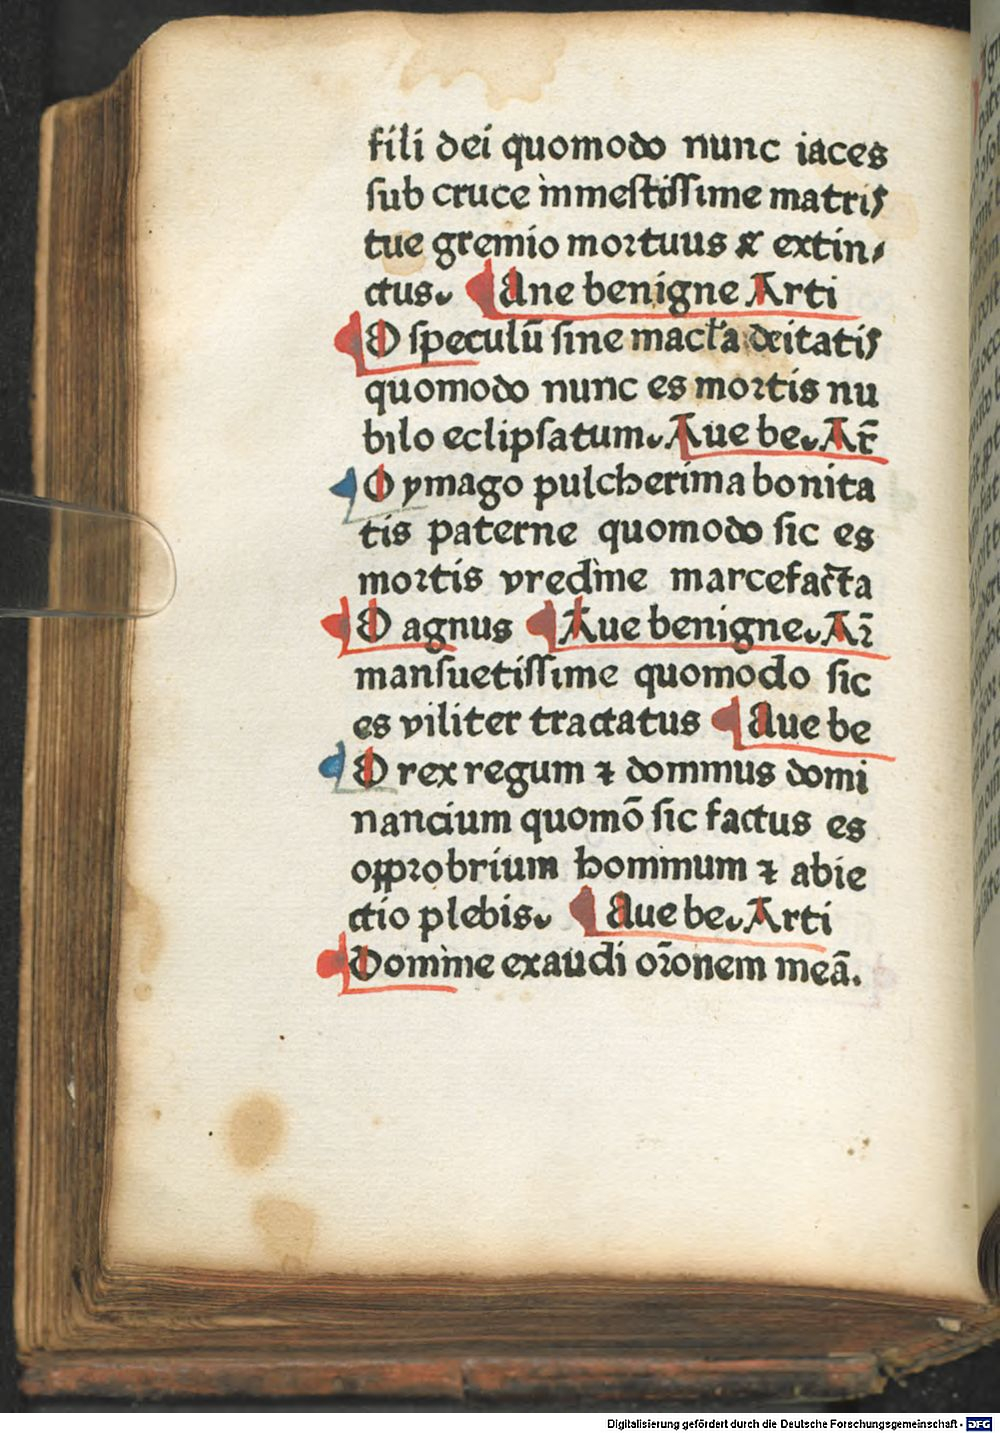 fili dei quomodo nunc iaces
sub cruce in mestissime matris
tue gremio mortuus & extin⸗
ctus. Aue benigne Arti
O speculū sine macl'a deitatis
quomodo nunc es mortis nu
bilo eclipsatum. Aue be. Ar̄
O ymago pulcherima bonita
tis paterne quomodo sic es
mortis vredine marcefacta
O agnus Aue benigne. Ar̄
mansuetissime quomodo sic
es viliter tractatus Aue be
O rex regum ⁊ dominus domi
nancium quomō sic factus es
opprobrium hominum ⁊ abie
ctio plebis. Aue be. Arti
Domine exaudi or̄onem meā.
Digitalisierung gefördert durch die Deutsche Forschungsgemeinschaft - DFG